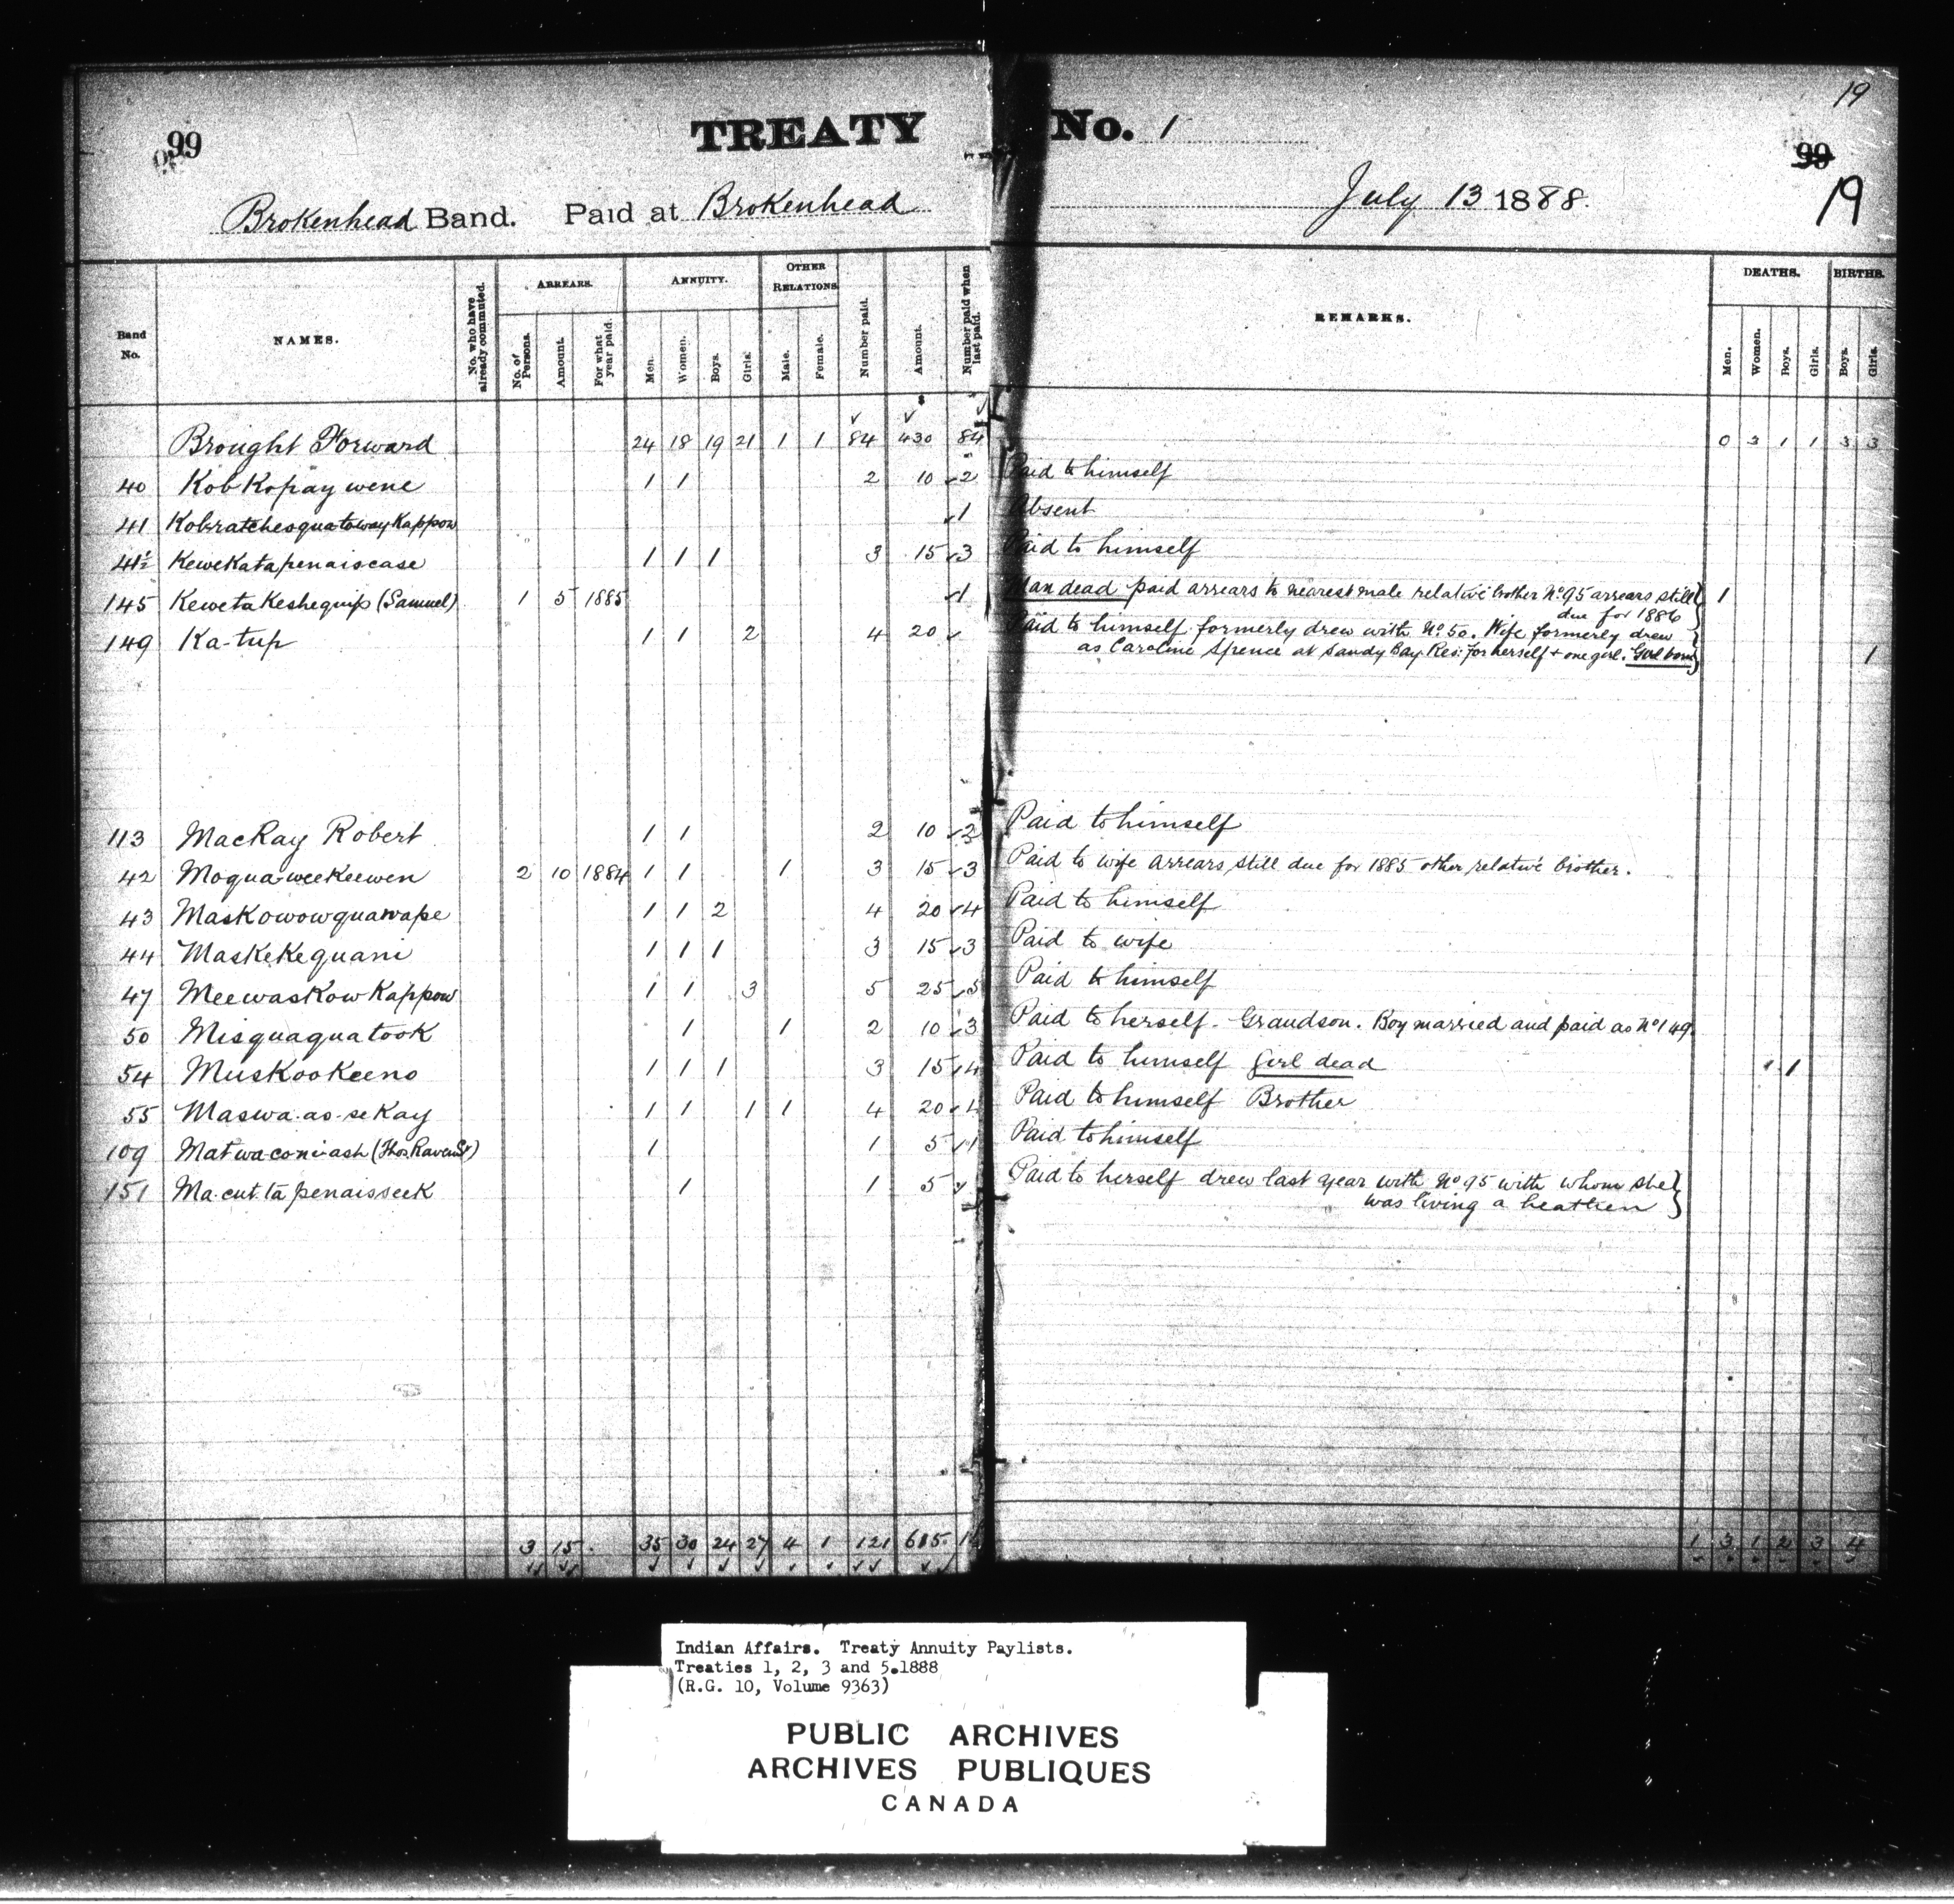 19
99 TREATY No. 1 99
19
Brokenhead Band. Paid at Brokenhead July 13 1888.
Band No. NAMES. No. who have already commuted. ARREARS. No. of Persons. Amount. For what year paid. ANNUITY. Men. Women. Boys. Girls. OTHER RELATIONS Male. Female. Number paid. Amount. Number paid when last paid. REMARKS. DEATHS. Men. Women. Boys. Girls. BIRTHS. Boys. Girls.
Brought Forward 24 18 19 21 1 1 84 430 84 0 3 1 1 3 3
40 Kob Kopay wene 1 1 2 10 2 Paid to himself
41 Kobratchesquatoway Kappow 1 Absent
41½ Kewekatapenaiscase 1 1 1 3 15 3 Paid to himself
145 Keweta Keshequip (Samuel) 1 5 1885 1 Man dead paid arrears to nearest male relative brother No 95 arrears still 1
due for 1886
149 Ka-tup 1 1 2 4 20 Paid to himself formerly drew with No 50. Wife formerly drew
as Caroline Spence at Sandy Bay Res: for herself + one girl. Girl born 1
113 MacKay Robert 1 1 2 10 2 Paid to himself
42 Moqua-weekeewen 2 10 1884 1 1 1 3 15 3 Paid to wife arrears still due for 1885 other relative brother.
43 Maskowowquawape 1 1 2 4 20 4 Paid to himself
44 Maskekequani 1 1 1 3 15 3 Paid to wife
47 Meewaskow Kappow 1 1 3 5 25 5 Paid to himself
50 Misquaquatook 1 1 2 10 3 Paid to herself - Grandson. Boy married and paid as No 149.
54 Muskookeeno 1 1 1 3 15 4 Paid to himself Girl dead 1
55 Maswa-as-se Kay 1 1 1 1 4 20 4 Paid to himself Brother
109 Matwaconiash (Thos Raven Sr) 1 1 5 1 Paid to himself
151 Ma-cut-ta penaisseek 1 1 5 Paid to herself drew last year with No 95 with whom she
was living a heathen
3 15 35 30 24 27 4 1 121 615 1 3 1 2 3 4
Indian Affairs. Treaty Annuity Paylists.
Treaties 1, 2, 3 and 5.1888
(R.G. 10, Volume 9363)
PUBLIC ARCHIVES
ARCHIVES PUBLIQUES
CANADA